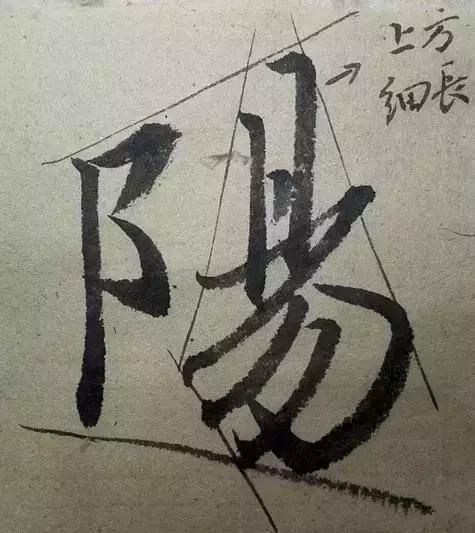 陽
上方
细長